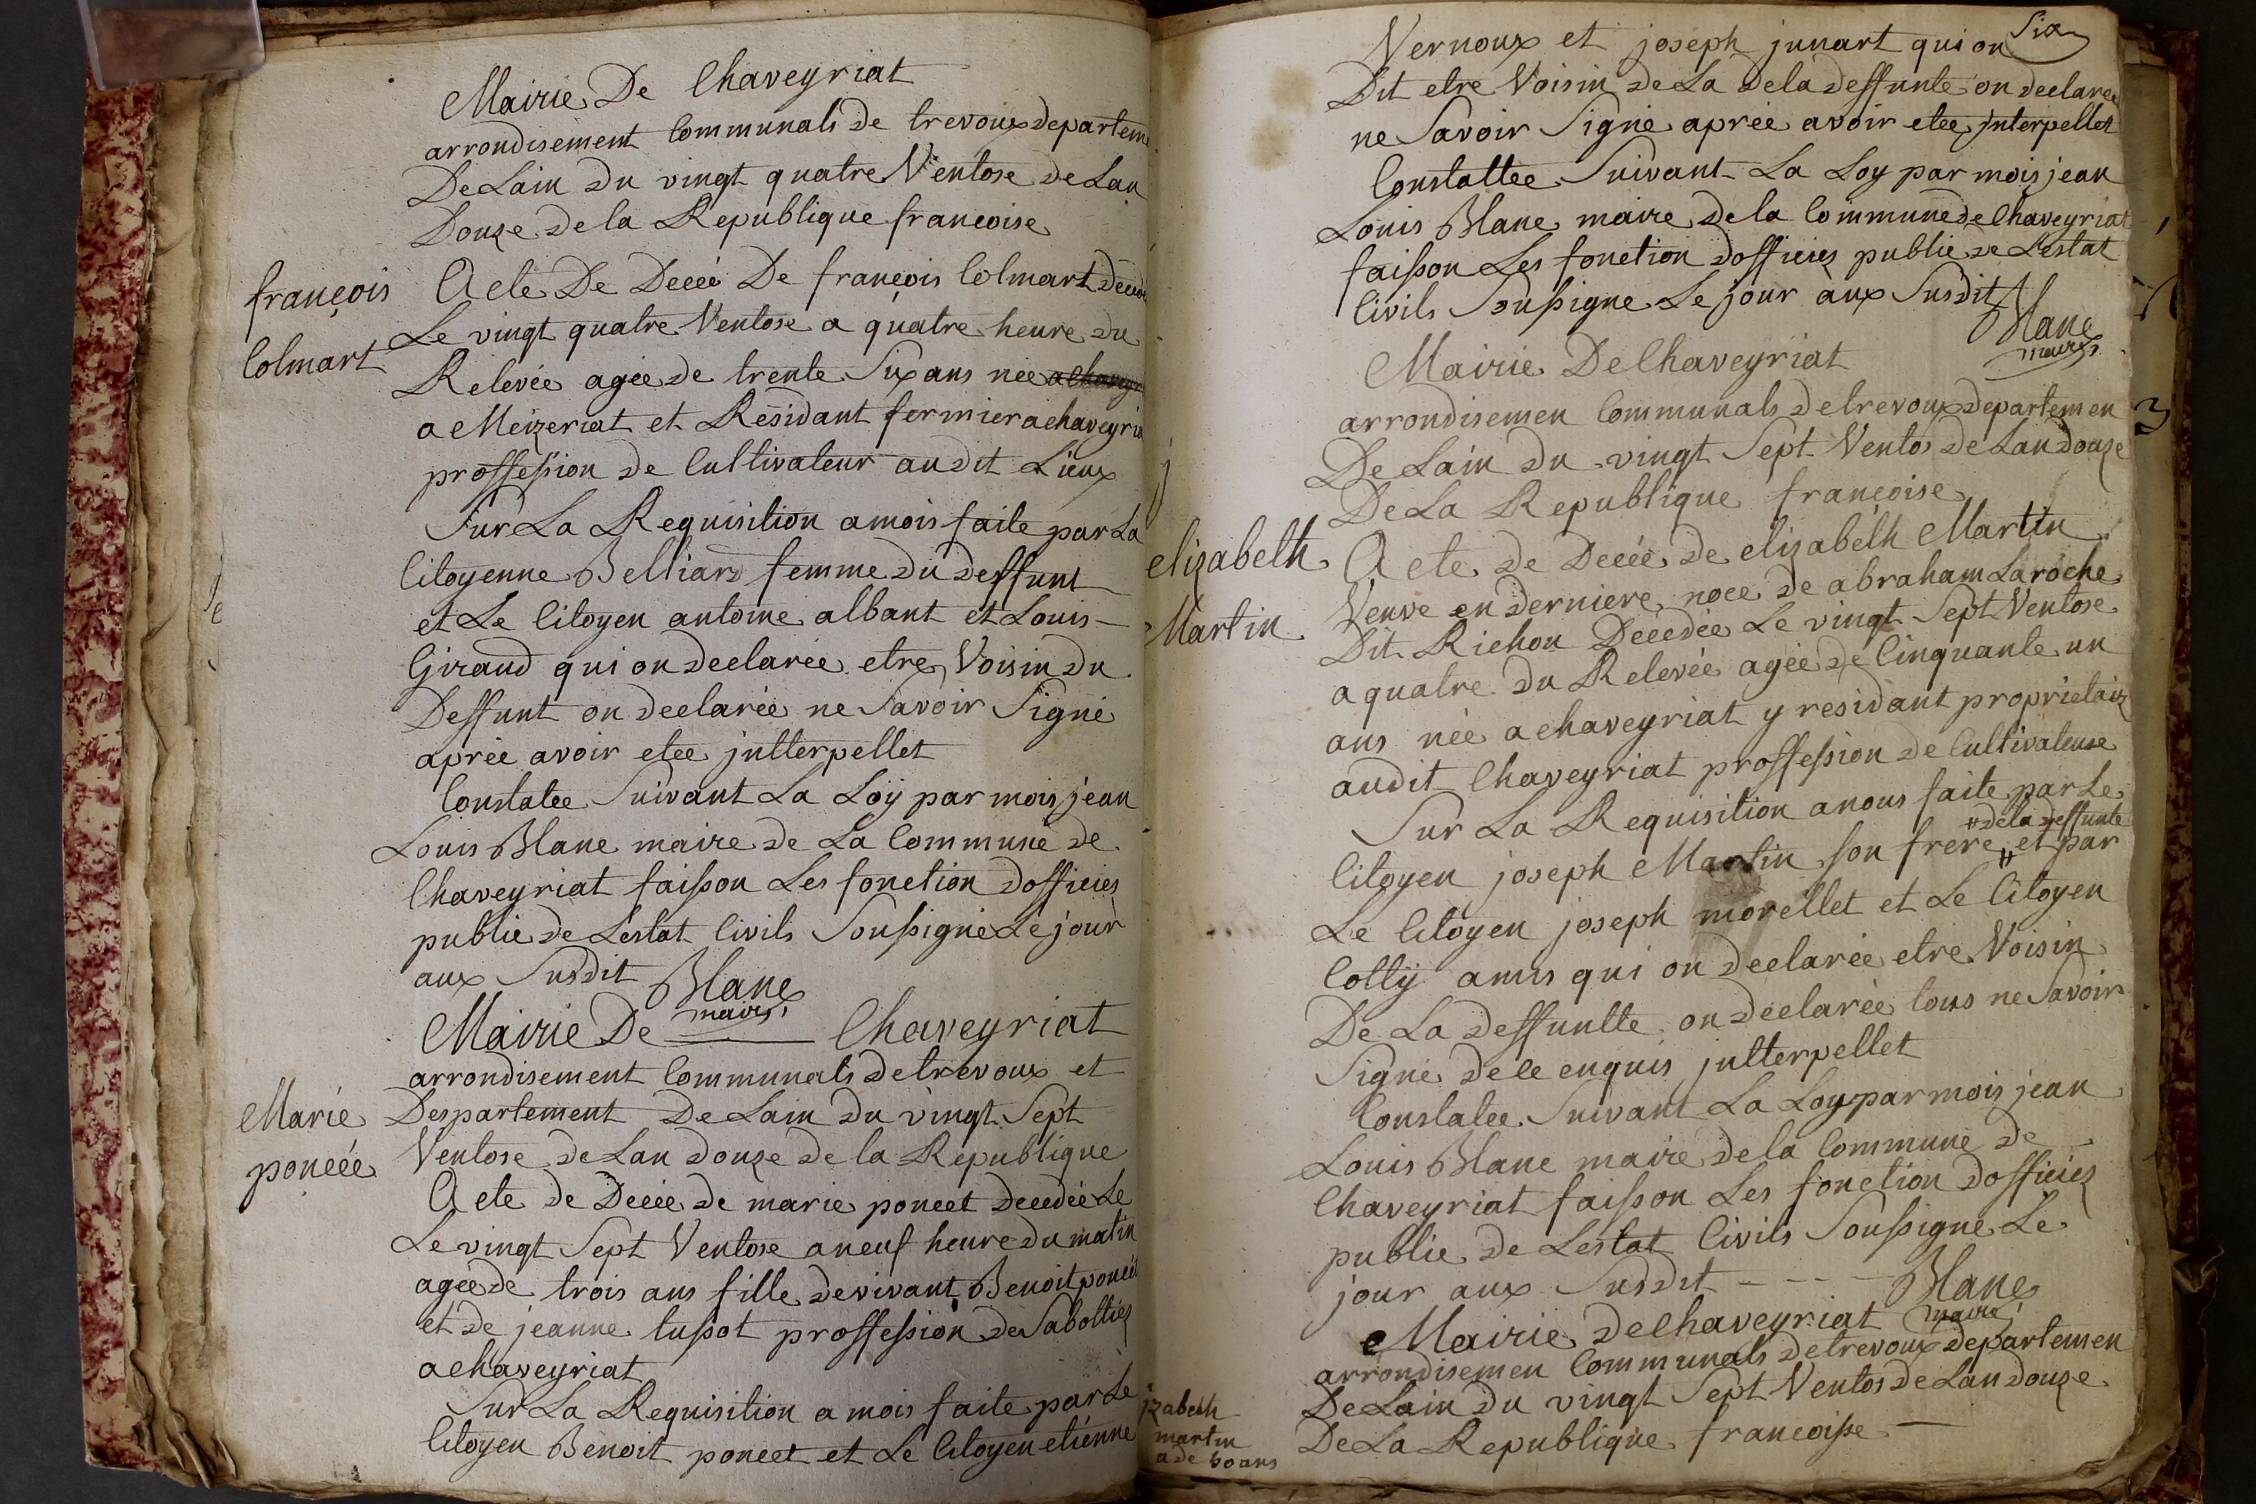 Mairie De Chaveyriat
arrondisement Communals de trevoux departeme
De Lain du vingt quatre Ventose de Lan
Douze de la Republique francoise
françois
Colmart
Acte De Decéé De françois Colmart
Le vingt quatre Ventose a quatre heure du
Relevée agée de trente Six ans née a Chaveyr
a Meizeriat et Résidant fermier a chaveyria
proffession de Cultivateur audit Lieux
Sur La Requisition a mois faite par La
Citoyenne Belliard femme du deffunt
et Le Citoyen antoine albant et Louis
Giraud qui on declarée etre Voisin du
Deffunt on declarée ne Savoir Signé
aprée avoir etee jntterpellet
Constatee Suivant La Loÿ par mois jean
Louis Blanc maire de La Commune de
Chaveyriat faisson Les fonction dofficiez
public de Lestat Civils Soussigné Le jour
aux Susdit Blanc
maire
Mairie De Chaveyriat
arrondisement Communals de trevoux et
Marie
poncéé
Despartement De Lain du vingt Sept
Ventose de Lan douze de la Republique
Acte de Decéé de marie poncet decedée Le
Le vingt Sept Ventose a neuf heure du matin
agée de trois ans fille de vivant Benoit poncét
et de jeanne tussot proffession de Sabottiez
a chaveyriat
Sur La Requisition a mois faite par Le
Citoyen Benoit poncet et Le Citoyen etienne
Six
Vernoux et joseph junart qui on
Dit etre Voisin de La de la deffunte on declaree
ne Savoir Signé aprée avoir etee jnterpellet
Constattee Suivant La Loy par mois jean
Louis Blanc maire de la Commune de Chaveyriat
faisson Les fonction dofficiez public de Lestat
Civils Soussigne Le jour aux Susdit
Blanc
maire
Mairie De Chaveyriat
arrondisemen Communals de trevoux departemen
De Lain du vingt Sept Ventos de Lan douze
De La Republique françoise
elizabelh
Martin
Acte de Decéé de elizabelh Martin
Veuve en derniere noce de abraham Laroche
Dit Richon Décedée Le vingt Sept Ventose
a quatre du Relevée agée de Cinquante un
ans née a chaveyriat y residant proprietaiz
audit Chaveyriat proffession de Cultivateuse
Sur La Requisition a nous faite par Le
# de la deffunte
Citoyen joseph Martin son frere # et par
Le Citoyen joseph morellet et Le Citoyen
Collÿ amis qui on declarée etre Voisin
De La deffuntte on declarée tous ne Savoir
Signé de ce enquis jntterpellet
Constatee Suivant La Loy par mois jean
Louis Blanc maire de la Commune de
Chaveyriat faisson Les fonction dofficiez
public de Lestat Civils Soussigné Le
jour aux Susdit - - - Blanc
maire
Mairie de Chaveyriat
arrondisemen Communals de trevoux departemen
De Lain du vingt Sept Ventos de Lan douze
De La Republique francoisse
jzabelh
martin
a de 60 ans